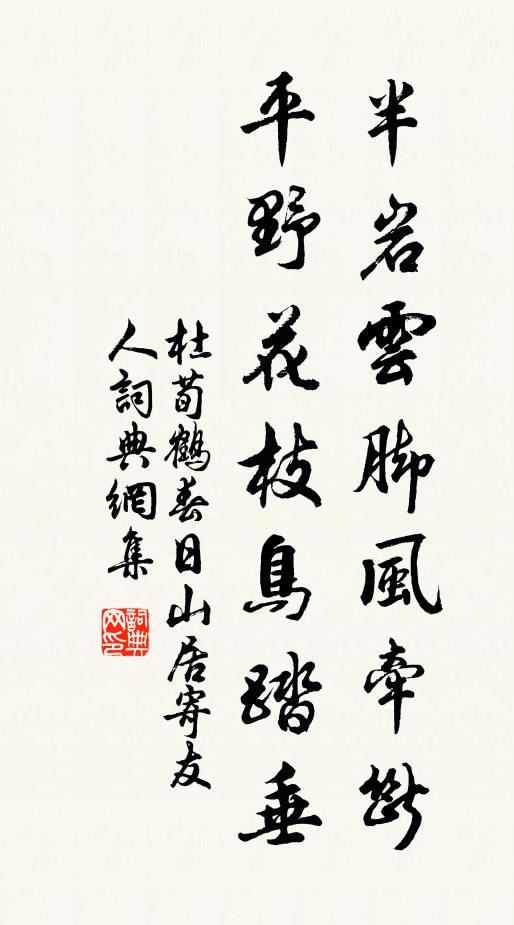 半岩雲脚風牽斷
平野花枝鳥踏垂
杜荀鶴春日山居寄友
人詞典網集
詞典
网印